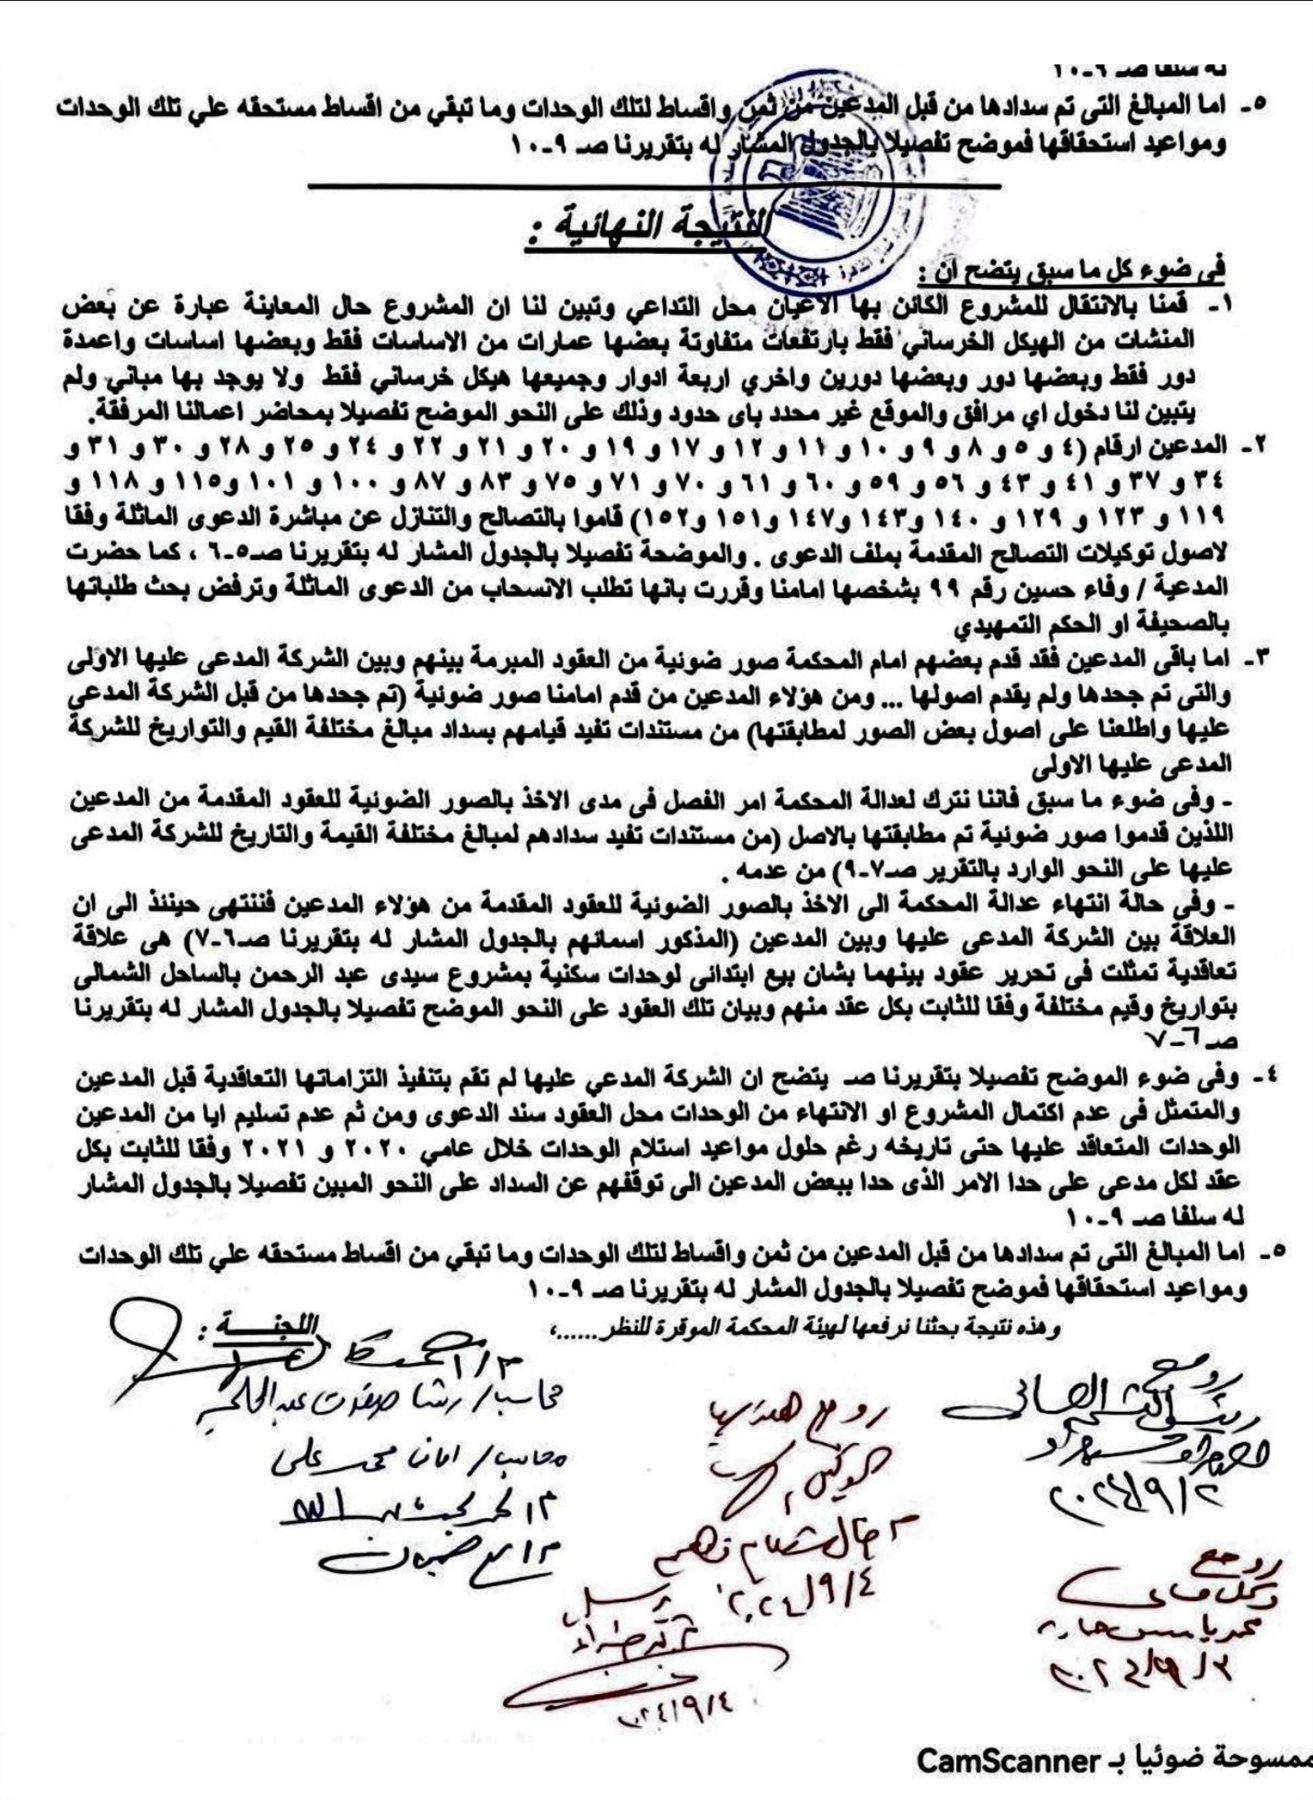 له سلفا صـ ٩-١٠
٥- اما المبالغ التى تم سدادها من قبل المدعين من ثمن واقساط لتلك الوحدات وما تبقي من اقساط مستحقه علي تلك الوحدات
ومواعيد استحقاقها فموضح تفصيلا بالجدول المشار له بتقريرنا صـ ٩-١٠
النتيجة النهائية :
فى ضوء كل ما سبق يتضح ان :
١- قمنا بالانتقال للمشروع الكائن بها الاعيان محل التداعي وتبين لنا ان المشروع حال المعاينة عبارة عن بعض
المنشات من الهيكل الخرساني فقط بارتفعات متفاوتة بعضها عمارات من الاساسات فقط وبعضها اساسات واعمدة
دور فقط وبعضها دور وبعضها دورين واخري اربعة ادوار وجميعها هيكل خرساني فقط ولا يوجد بها مباني ولم
يتبين لنا دخول اي مرافق والموقع غير محدد باى حدود وذلك على النحو الموضح تفصيلا بمحاضر اعمالنا المرفقة.
٢- المدعين ارقام (٤ و ٥ و ٨ و ٩ و ١٠ و ١١ و ١٢ و ١٧ و ١٩ و ٢٠ و ٢١ و ٢٢ و ٢٤ و ٢٥ و ٢٨ و ٣٠ و ٣١ و
٣٤ و ٣٧ و ٤١ و ٤٣ و ٥٦ و ٥٩ و ٦٠ و ٦١ و ٧٠ و ٧١ و ٧٥ و ٨٣ و ٨٧ و ١٠٠ و ١٠١ و١١٥ و ١١٨ و
١١٩ و ١٢٣ و ١٢٩ و ١٤٠ و١٤٣ و١٤٧ و١٥١ و١٥٢) قاموا بالتصالح والتنازل عن مباشرة الدعوى الماثلة وفقا
لاصول توكيلات التصالح المقدمة بملف الدعوى . والموضحة تفصيلا بالجدول المشار له بتقريرنا صـ٥-٦ ، كما حضرت
المدعية / وفاء حسين رقم ٩٩ بشخصها امامنا وقررت بانها تطلب الانسحاب من الدعوى الماثلة وترفض بحث طلباتها
بالصحيفة او الحكم التمهيدي
٣- اما باقى المدعين فقد قدم بعضهم امام المحكمة صور ضوئية من العقود المبرمة بينهم وبين الشركة المدعى عليها الاولى
والتى تم جحدها ولم يقدم اصولها ... ومن هؤلاء المدعين من قدم امامنا صور ضوئية (تم جحدها من قبل الشركة المدعى
عليها واطلعنا على اصول بعض الصور لمطابقتها) من مستندات تفيد قيامهم بسداد مبالغ مختلفة القيم والتواريخ للشركة
المدعى عليها الاولى
- وفى ضوء ما سبق فاننا نترك لعدالة المحكمة امر الفصل فى مدى الاخذ بالصور الضوئية للعقود المقدمة من المدعين
اللذين قدموا صور ضوئية تم مطابقتها بالاصل (من مستندات تفيد سدادهم لمبالغ مختلفة القيمة والتاريخ للشركة المدعى
عليها على النحو الوارد بالتقرير صـ٧-٩) من عدمه .
- وفى حالة انتهاء عدالة المحكمة الى الاخذ بالصور الضوئية للعقود المقدمة من هؤلاء المدعين فننتهى حينئذ الى ان
العلاقة بين الشركة المدعى عليها وبين المدعين (المذكور اسمائهم بالجدول المشار له بتقريرنا صـ٦-٧) هى علاقة
تعاقدية تمثلت فى تحرير عقود بينهما بشان بيع ابتدائى لوحدات سكنية بمشروع سيدى عبد الرحمن بالساحل الشمالى
بتواريخ وقيم مختلفة وفقا للثابت بكل عقد منهم وبيان تلك العقود على النحو الموضح تفصيلا بالجدول المشار له بتقريرنا
صـ ٦-٧
٤- وفى ضوء الموضح تفصيلا بتقريرنا صـ يتضح ان الشركة المدعي عليها لم تقم بتنفيذ التزاماتها التعاقدية قبل المدعين
والمتمثل فى عدم اكتمال المشروع او الانتهاء من الوحدات محل العقود سند الدعوى ومن ثم عدم تسليم ايا من المدعين
الوحدات المتعاقد عليها حتى تاريخه رغم حلول مواعيد استلام الوحدات خلال عامي ٢٠٢٠ و ٢٠٢١ وفقا للثابت بكل
عقد لكل مدعى على حدا الامر الذى حدا ببعض المدعين الى توقفهم عن السداد على النحو المبين تفصيلا بالجدول المشار
له سلفا صـ ٩-١٠
٥- اما المبالغ التى تم سدادها من قبل المدعين من ثمن واقساط لتلك الوحدات وما تبقي من اقساط مستحقه علي تلك الوحدات
ومواعيد استحقاقها فموضح تفصيلا بالجدول المشار له بتقريرنا صـ ٩-١٠
وهذه نتيجة بحثنا نرفعها لهيئة المحكمة الموقرة للنظر......،
اللجنـــة :
محاسب/ رشا صفوت عبدالحليم
محاسب/ امانى محمد على
روجع هندسيا
الوكيل
٢٠٢٤/٩/٤
روجع
٢٠٢٤/٩/٢
روجع
محمد ياسين
٢٠٢٤/٩/٣
٢٠٢٤/٩/٤
ممسوحة ضوئيا بـ CamScanner